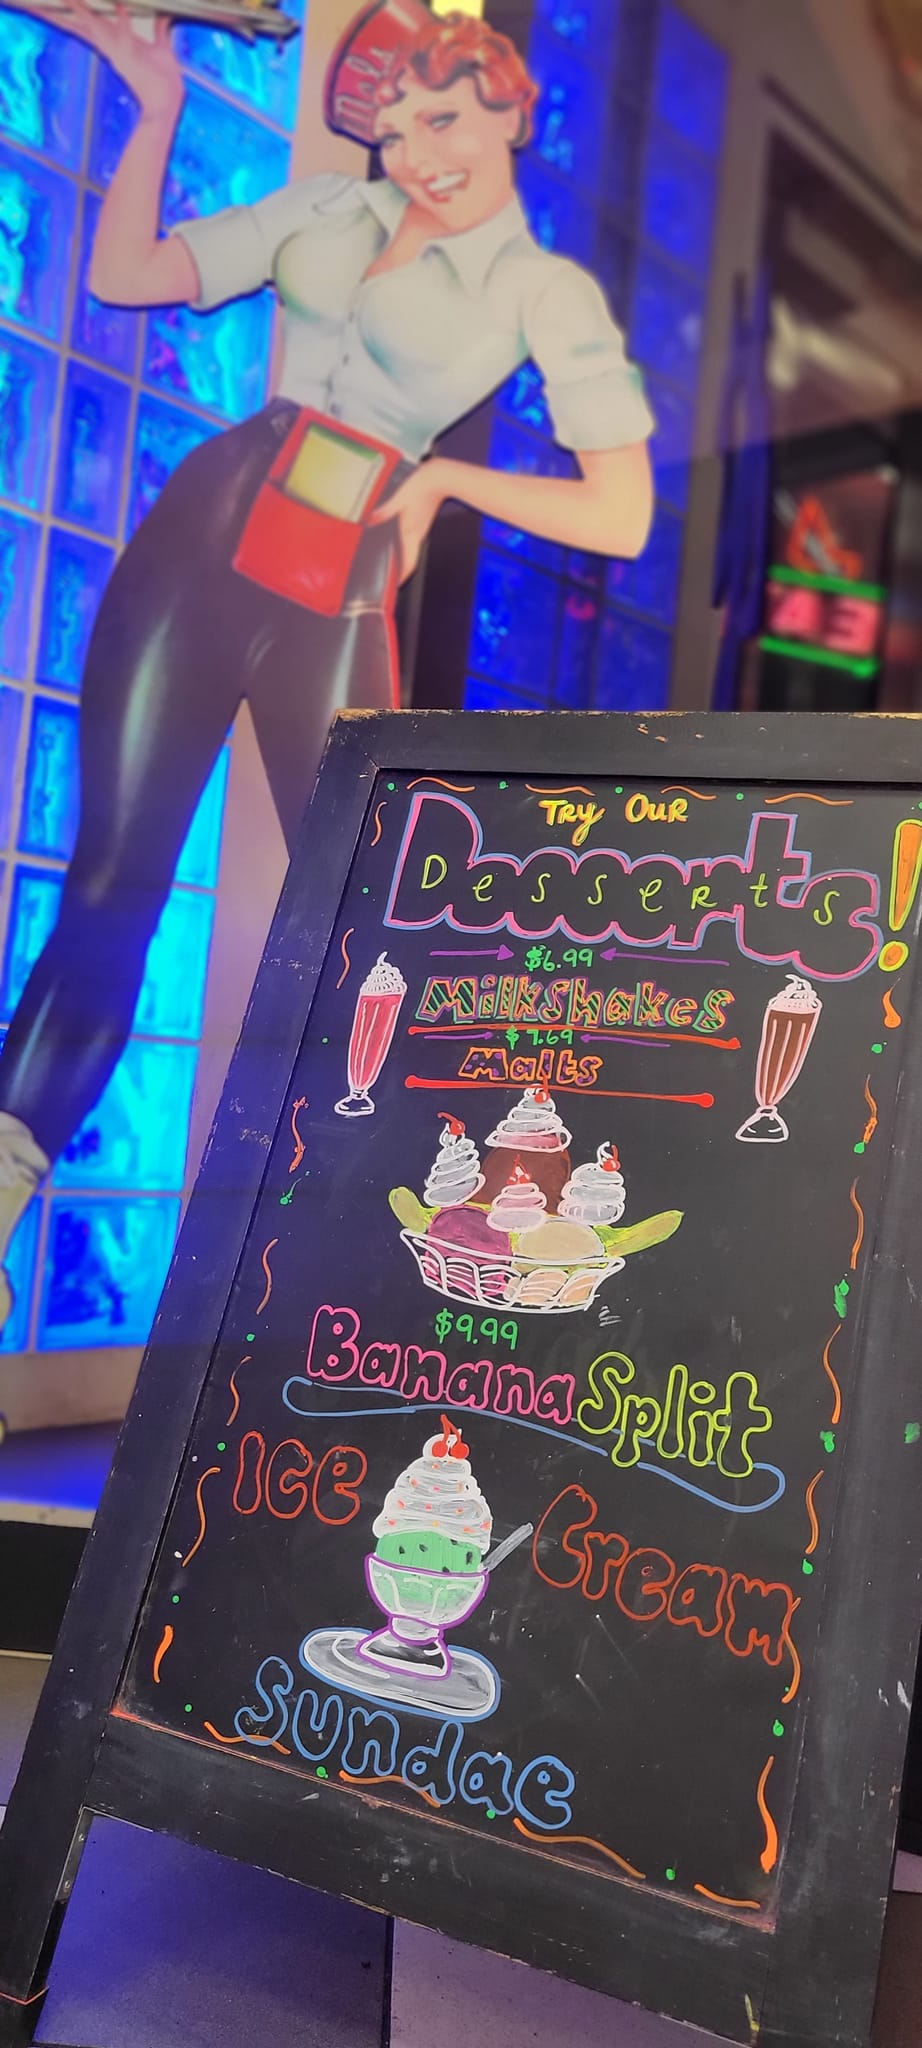 Mels
A3
TRY OUR
Desserts!
$6.99
Milkshakes
$7.69
Malts
$9.99
Banana Split
Ice Cream
Sundae